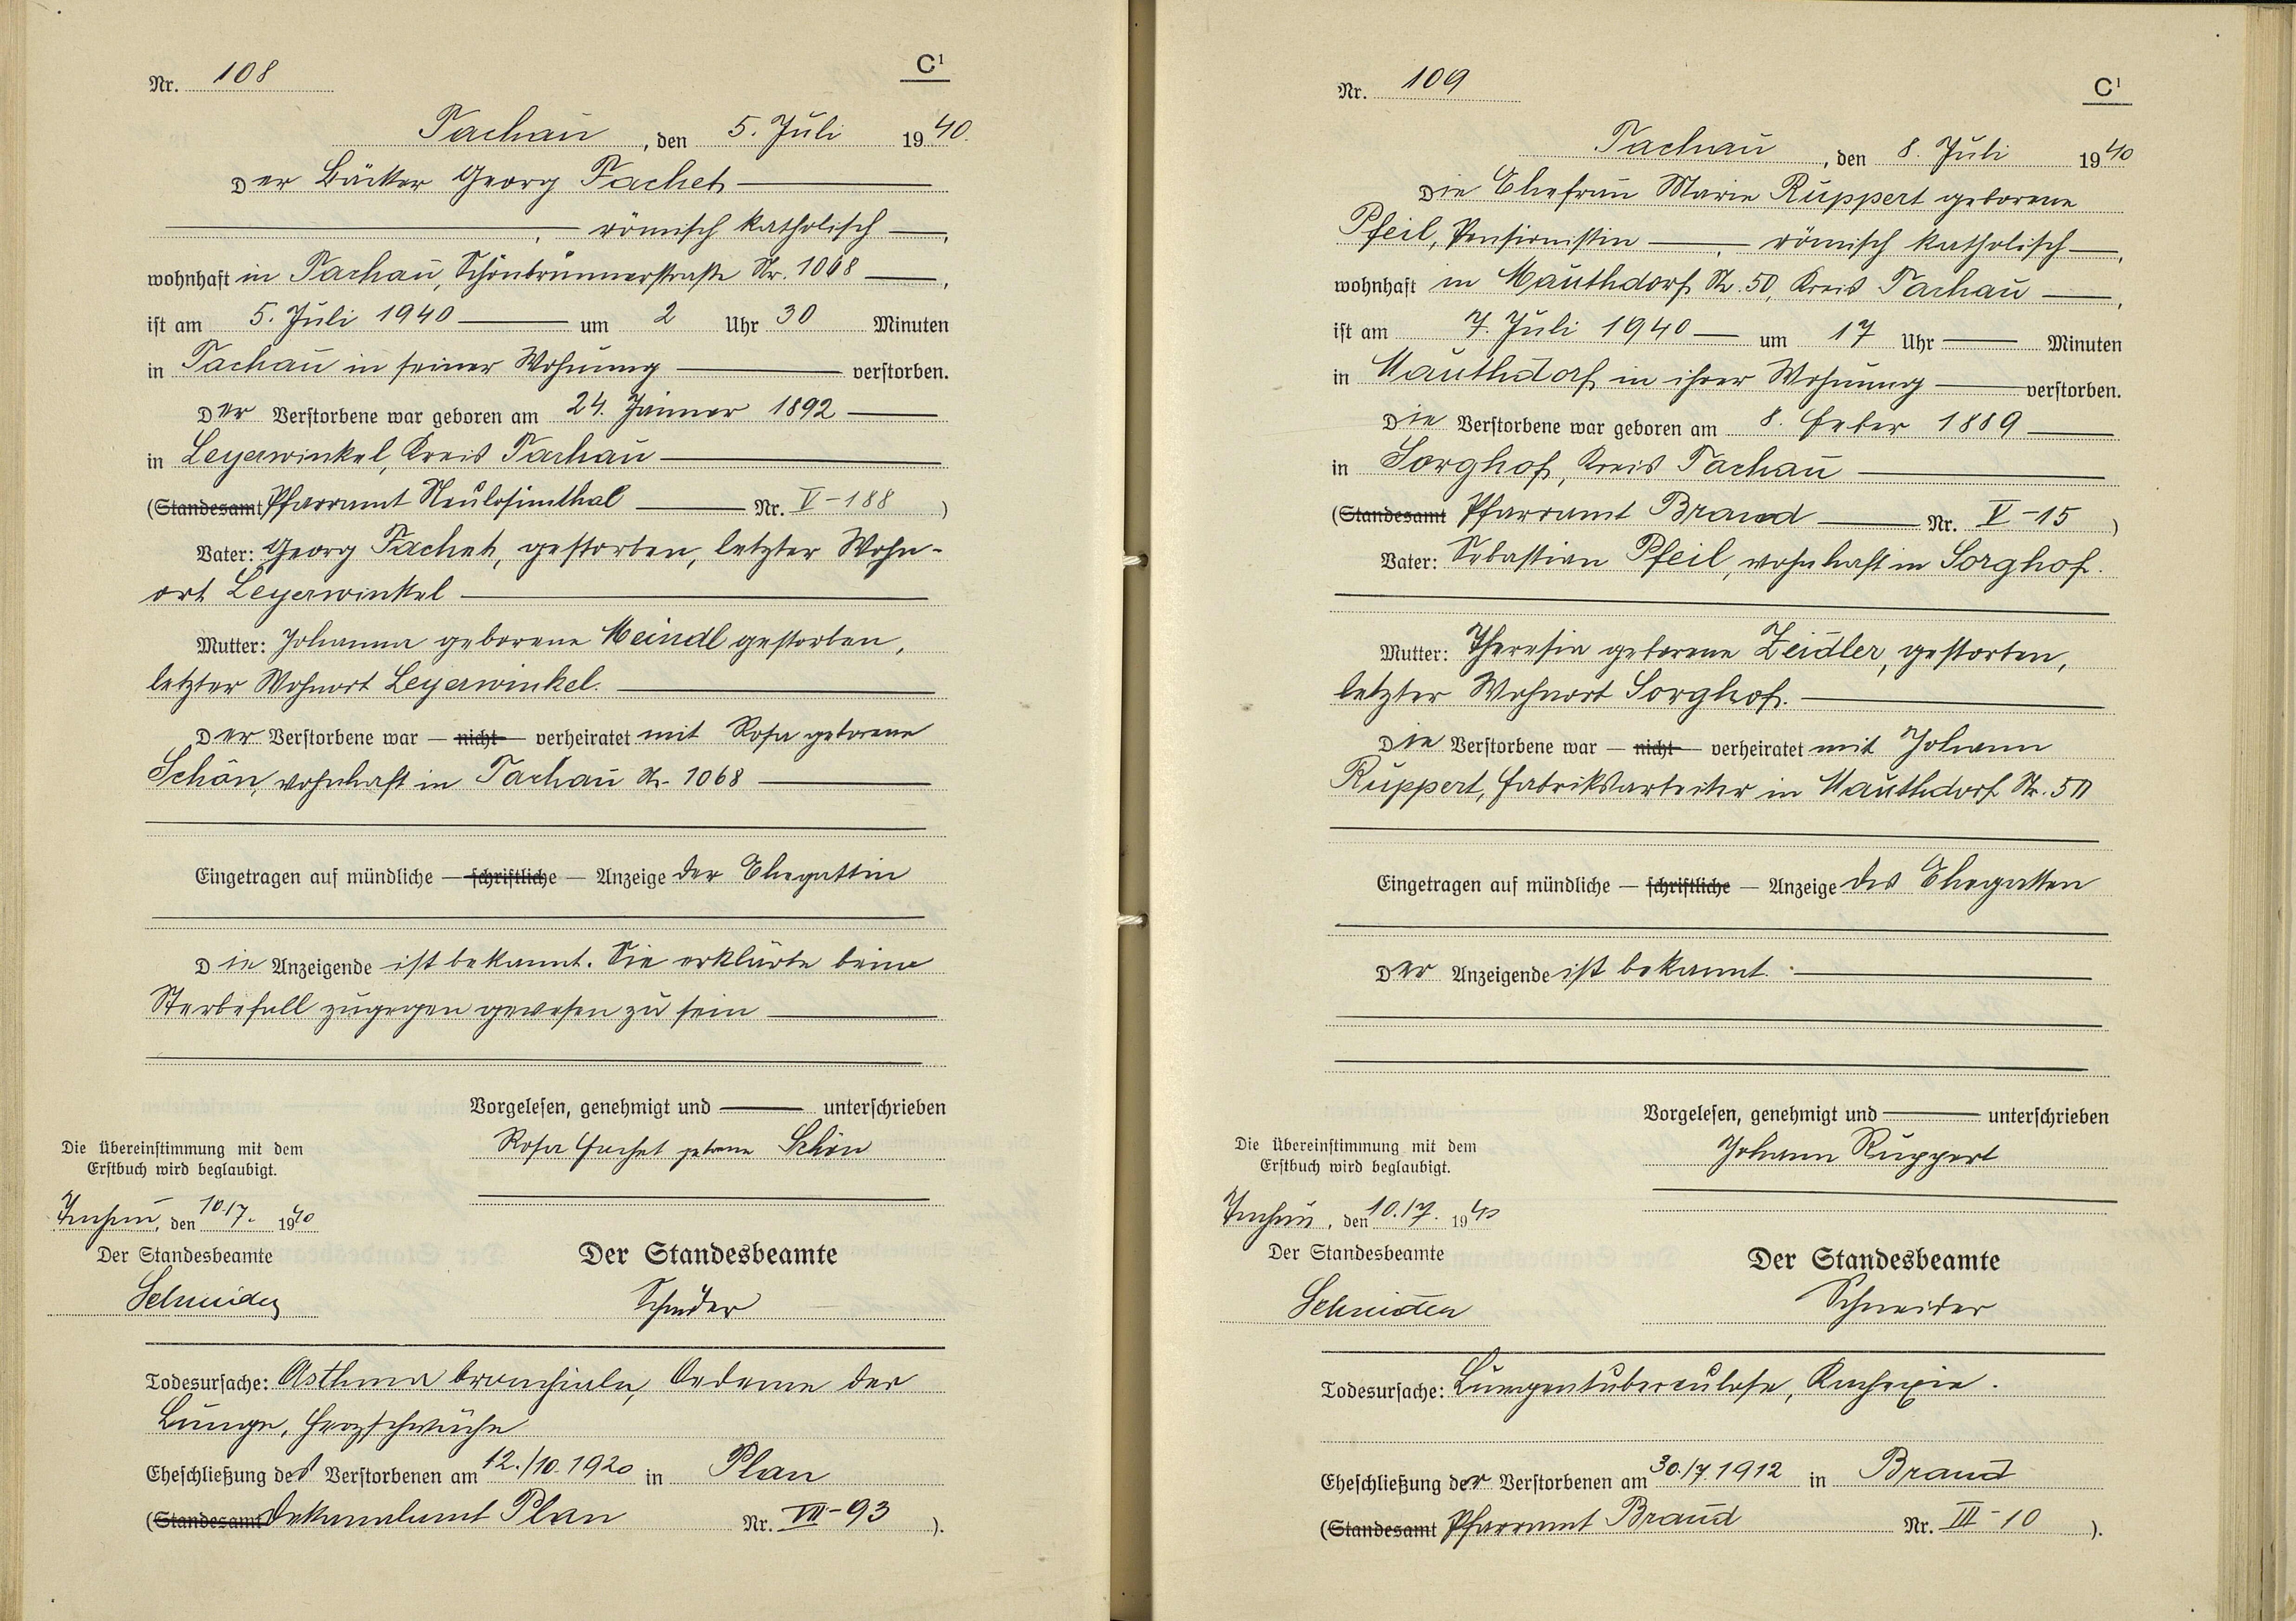 Nr. 108
C¹
Tachau, den 5. Juli 1940.
Der Bäcker Georg Fachet
, römisch katholisch ,
wohnhaft in Tachau, Schönbrunnerstraße Nr. 1068 ,
ist am 5. Juli 1940 um 2 Uhr 30 Minuten
in Tachau in seiner Wohnung verstorben.
Der Verstorbene war geboren am 24. Jänner 1892
in Leyerwinkel, Kreis Tachau
(Standesamt Pfarramt Neulosimthal Nr. V-188 )
Vater: Georg Fachet, gestorben, letzter Wohn-
ort Leyerwinkel
Mutter: Johanna geborene Meindl gestorben,
letzter Wohnort Leyerwinkel.
Der Verstorbene war — nicht — verheiratet mit Rosa geborene
Schön, wohnhaft in Tachau Nr. 1068
Eingetragen auf mündliche — schriftliche — Anzeige der Ehegattin
Die Anzeigende ist bekannt. Sie erklärte beim
Sterbefall zugegen gewesen zu sein
Vorgelesen, genehmigt und unterschrieben
Rosa Fachet geborene Schön
Die Übereinstimmung mit dem
Erstbuch wird beglaubigt.
Tachau, den 10./7. 1940
Der Standesbeamte
Schneider
Der Standesbeamte
Schneider
Todesursache: Asthma bronchiale, Oedeme der
Lunge, Herzschwäche
Eheschließung des Verstorbenen am 12./10.1920 in Plan
(Standesamt Dekanalamt Plan Nr. VII-93 ).
Nr. 109
C¹
Tachau, den 8. Juli 1940
Die Ehefrau Marie Ruppert geborene
Pfeil, Pensionistin , römisch katholisch ,
wohnhaft in Mauthdorf Nr. 50, Kreis Tachau ,
ist am 7. Juli 1940 um 17 Uhr Minuten
in Mauthdorf in ihrer Wohnung verstorben.
Die Verstorbene war geboren am 8. Feber 1889
in Sorghof, Kreis Tachau
(Standesamt Pfarramt Brand Nr. V-15 )
Vater: Sebastian Pfeil, wohnhaft in Sorghof.
Mutter: Theresia geborene Zeidler, gestorben,
letzter Wohnort Sorghof.
Die Verstorbene war — nicht — verheiratet mit Johann
Ruppert, Fabriksarbeiter in Mauthdorf Nr. 50
Eingetragen auf mündliche — schriftliche — Anzeige des Ehegatten
Der Anzeigende ist bekannt.
Vorgelesen, genehmigt und unterschrieben
Johann Ruppert
Die Übereinstimmung mit dem
Erstbuch wird beglaubigt.
Tachau, den 10./7. 1940
Der Standesbeamte
Schneider
Der Standesbeamte
Schneider
Todesursache: Lungentuberculose, Kachexie.
Eheschließung der Verstorbenen am 30./7.1912 in Brand
(Standesamt Pfarramt Brand Nr. III-10 ).